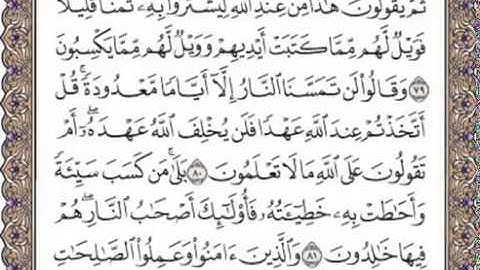 ثُمَّ يَقُولُونَ هَٰذَا مِنْ عِندِ ٱللَّهِ لِيَشْتَرُوا۟ بِهِۦ ثَمَنًا قَلِيلًا
فَوَيْلٌ لَّهُم مِّمَّا كَتَبَتْ أَيْدِيهِمْ وَوَيْلٌ لَّهُم مِّمَّا يَكْسِبُونَ
٧٩ وَقَالُوا۟ لَن تَمَسَّنَا ٱلنَّارُ إِلَّآ أَيَّامًا مَّعْدُودَةً ۚ قُلْ
أَتَّخَذْتُمْ عِندَ ٱللَّهِ عَهْدًا فَلَن يُخْلِفَ ٱللَّهُ عَهْدَهُۥٓ ۖ أَمْ
تَقُولُونَ عَلَى ٱللَّهِ مَا لَا تَعْلَمُونَ ٨٠ بَلَىٰ مَن كَسَبَ سَيِّئَةً
وَأَحَٰطَتْ بِهِۦ خَطِيٓـَٔتُهُۥ فَأُو۟لَٰٓئِكَ أَصْحَٰبُ ٱلنَّارِ ۖ هُمْ
فِيهَا خَٰلِدُونَ ٨١ وَٱلَّذِينَ ءَامَنُوا۟ وَعَمِلُوا۟ ٱلصَّٰلِحَٰتِ